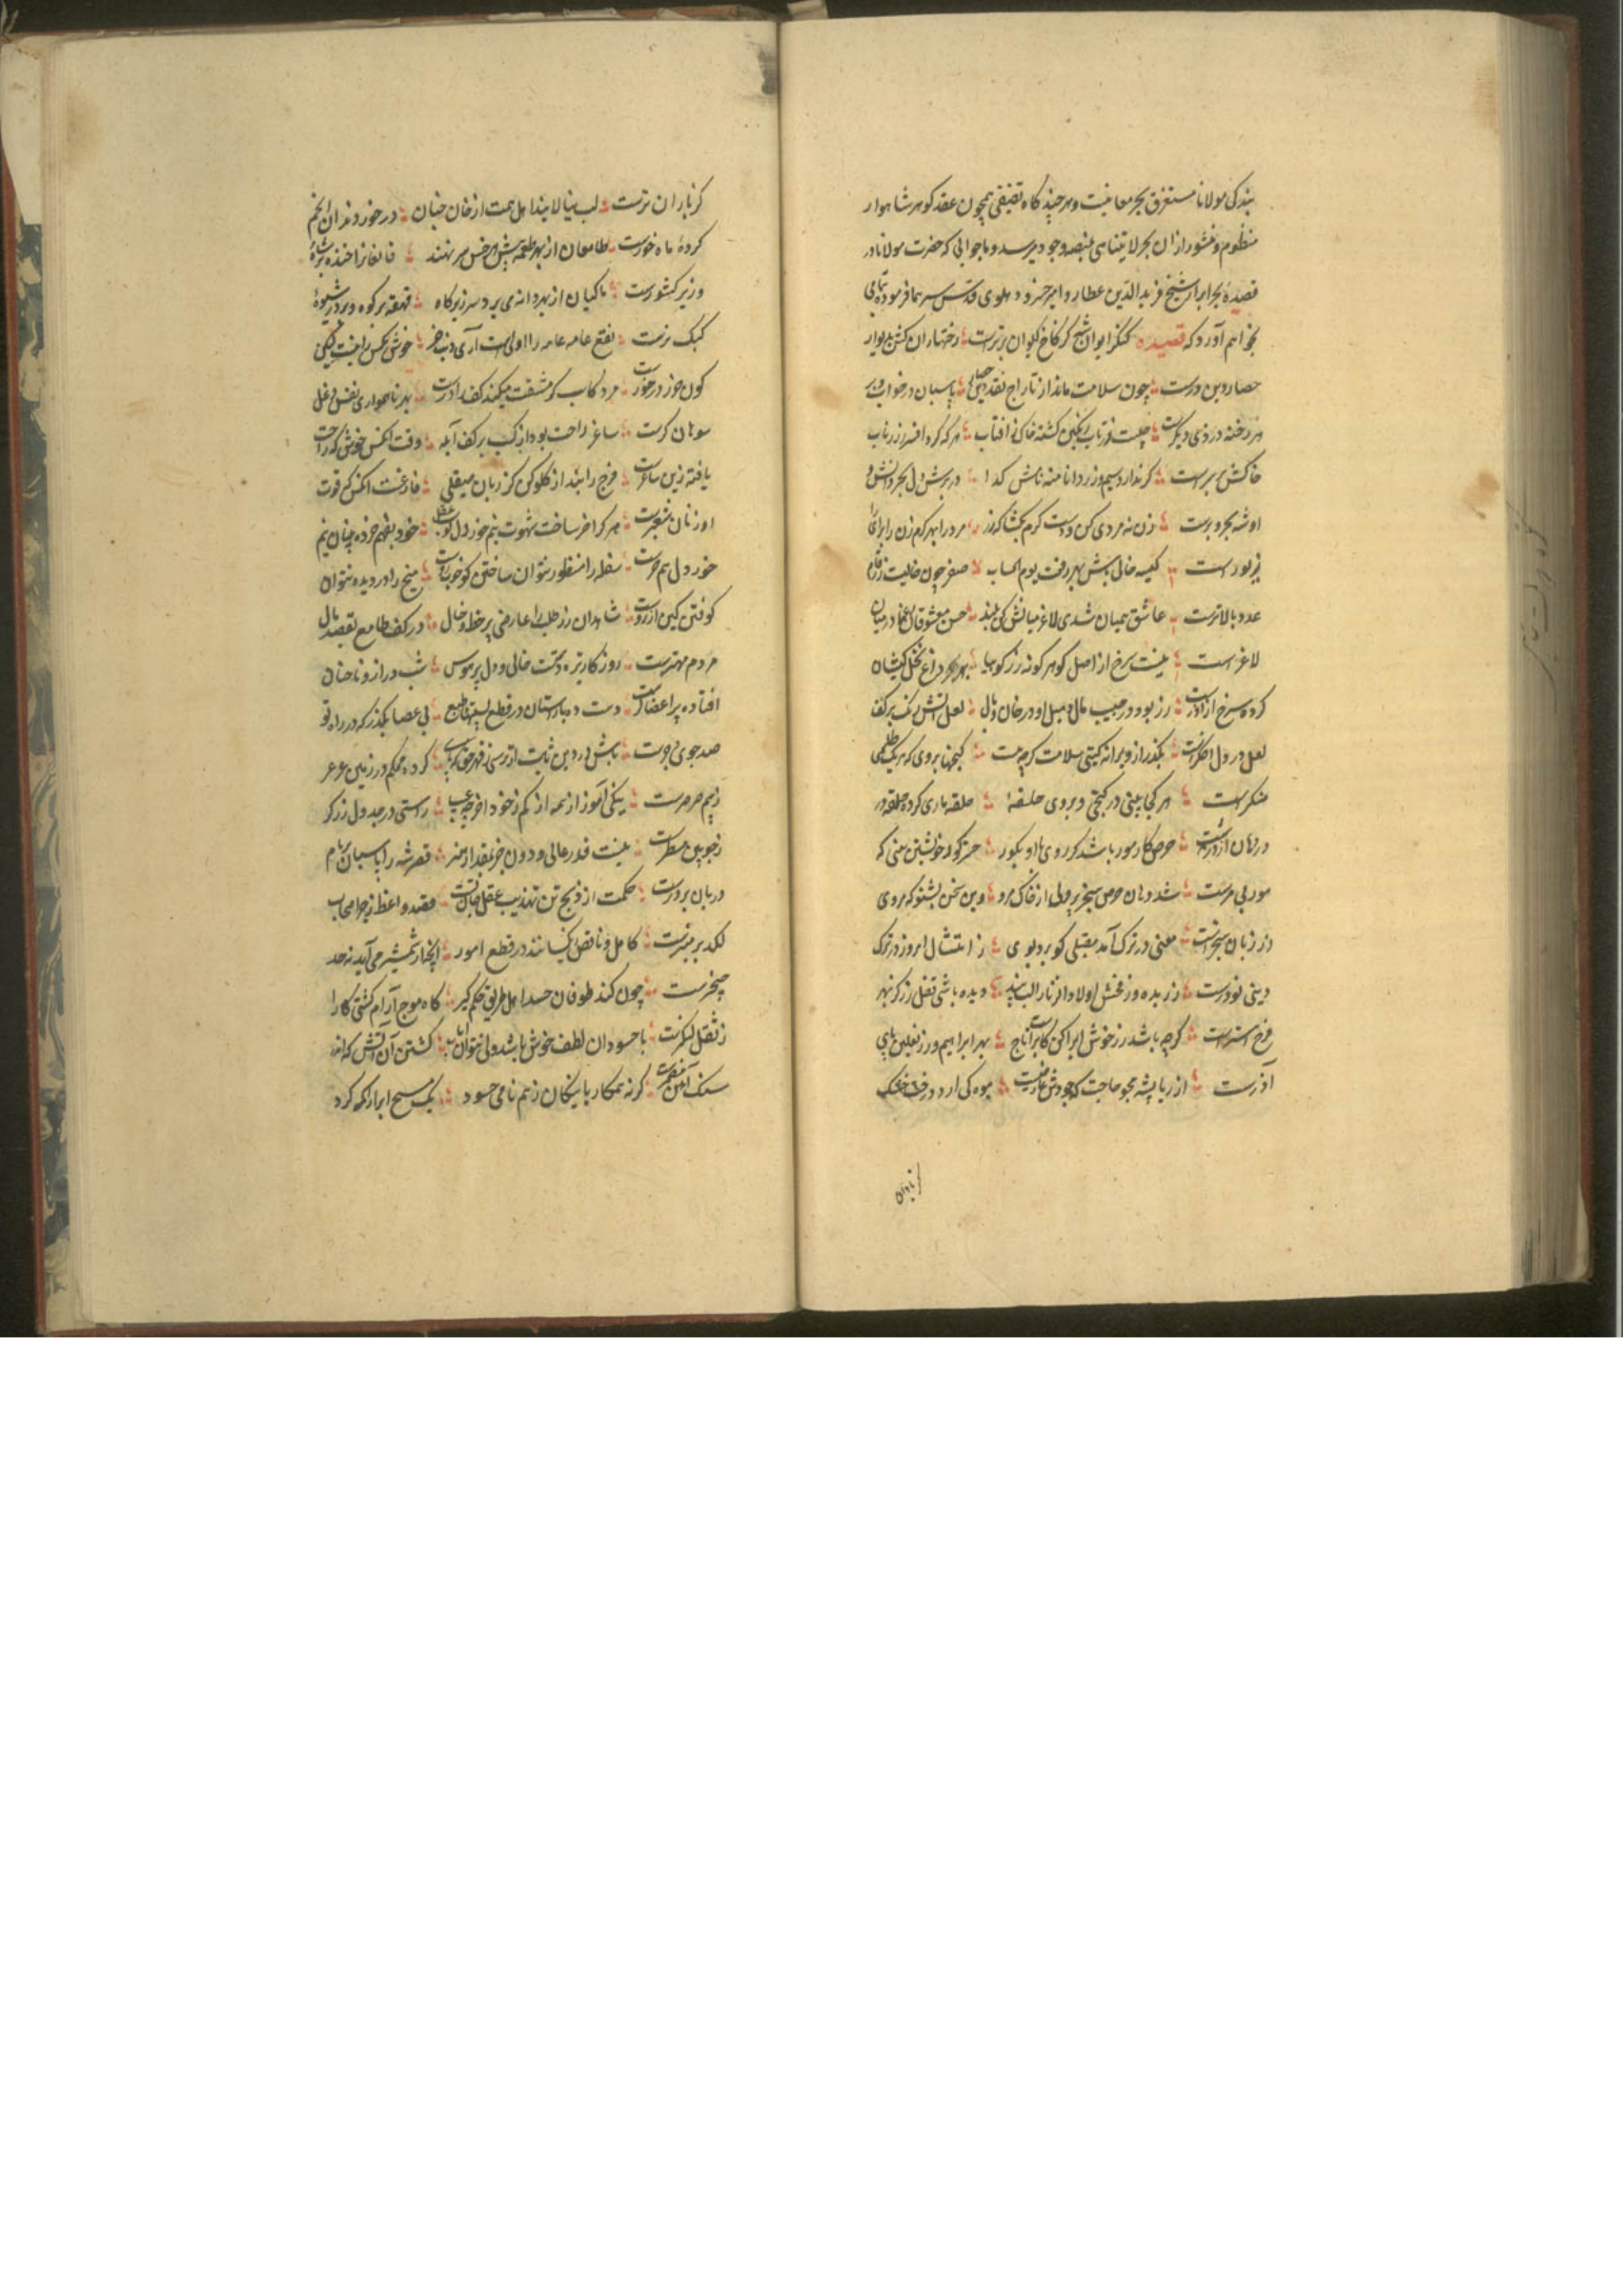 بندکی مولانا مستغرق بحر معانیست و هر چند کاه تقیقی همچون عقد کوهر شاهوار
منظوم و منثور از ان بحر لایتناهی بمنصه وجود میرسد و ما جوابی که حضرت مولانا در
قصیده بحر ابرار شیخ فرید الدین عطار و امیر خسرو دهلوی قدس سرهما فرموده تمامی
بخواهم آورد که قصیده کنکر ایوان شه کز کاخ کیوان برترست رخنها دان کش بدیوار
حصار دین درست چون سلامت ماند از تاراج نقد این حصار پاسبان در خواب و بر
هر رخنه دزدی دیکرست چیست زر ناب رنکین کشته خاکی ز افتاب هر که کرد افسر ز زر ناب
خاکش بر سرست کر ندارد سیم و زر دانا منه نامش کدا در برش دل بحر دانش و
او شه بحر و برست زن نه مردی کن و دست کرم بکشا که زر مرد را بهر کرم زن را برای
زیورست کیسه خالی باش بهر رفعت یوم الحساب صفر چون خالیست ز ارقام
عدد بالاترست عاشق همیان شدی لاغر میانش کن ببذل حسن معشوقان رعنا در میان
لاغرست نیست سرخ از اصل کوهر کونه زر کوییا بهر داغ بخل کیشان
کرده سرخ از آذرست زر بود در جیب مال و میل او در جان وبال لعل آتش رنک بر کف
لعل در دل اخکرست بکذر از ویرانه کیتی سلامت کرچه هست کنجها بر وی که هر یک را طلسمی
منکرست هر کجا بینی در کنجی و بر وی حلقهٔ حلقه ماری کرده حلقه در
دهان اژدرست حرص کار مور باشد کور روی ها و بکور حرز کور خویشتن بینی که
مور بی مرست شد دهان حرص سیر پر ولی از خاک مرو وین سخن بشنو که مروی
در زبان سنجرست معنی در ترک آمد مقبلی کو برد بوی ز امتثال امر وز در ترک
دینی نودرست زر بده وز فحش اولاد از ناز لب ببند دیده باشی قفل زر کز بهر
فرج استرست کرچه باشد زر خوش ابراکن کابرا تاج بهر ابراهیم و زر نعلین پای
آذرست از ریا پیشه مجو حاجت که جودش عارضیست میوه کی ارد درخت خشک
از باران
کز باران ترست لب نیالایند اهل همت از خان خسان در خور دندان انجم
کردهٔ ماه خورست طامعان از بهر طعمه پیش هر خس سر نهند قانعانرا خنده بر شاه
وزیر کشورست ماکیان از بهر دانه می برد سر زیر کاه قهقهه بر کوه و بر در شیوهٔ
کبک نرست نفع عامه عامه را اولی است آری دنب خر خوش مکس رانیست لیکن
کون خر در خورست مرد کاسب کز مشقت میکند کف را درشت بهر ناهمواری نفس دغل
سوهان کرست ساغر راحت بود از کسب بر کف آبله وقت انکس خوش که راحت
یافته زین ساغرست فرج را بند از کلو کن کز زبان صیقلی فارغست انکس که قوت
او ز نان شعیرست هر که را خر ساخت شهوت نیم خر دل کوبست خود بفهم خرده بینان نیم
خردل هم خرست سفله را منظور نتوان ساختن کو خوبروست میخ را در دیده نتوان
کوفتن کین از زرست شاهدان زر طلب را عارض پر خط و خال در کف طامع بقصد مال
مردم مهترست روز کار تیره دست خالی و دل پر هوس شب دراز و ناخنان
افتاده پر اعضا کرست دست ده با راستان در قطع پستیهای طبع بی عصا بکذر که در راه تو
صد جوی و جرست باش در دین ثابت از ترسی ز قهر حق که باد کرده محکم در زمین عرعر
ز بیم صرصرست نیکی آموز از همه از کم ز خود افزون چه عیب راستی در جدول زر کر
ز چوبین مسطرست نیست قدر عالی و دون جز بمقدار هنر قصر شه را پاسبان بر بام
دربان بر درست حکمت از رنج تن تهذیب عقل جانست مقصد واعظ ز محراب
لکد بر منبرست کامل و ناقص یکسانند در قطع امور انچه از شمشیر می آید نه حد
خنجرست چون کند طوفان حسد اهل طریق حلم کیر کاه موج آرام کشتی کار را
ز ثقل لنکرست با حسودان لطف خوش باشد ولی نتوان باب کشتن آن آتش که اندر
سنک آهن مضمرست کر نه بدکار با نیکان ز هم نامی چه سود یک مسیح ابراء اکمه کرد